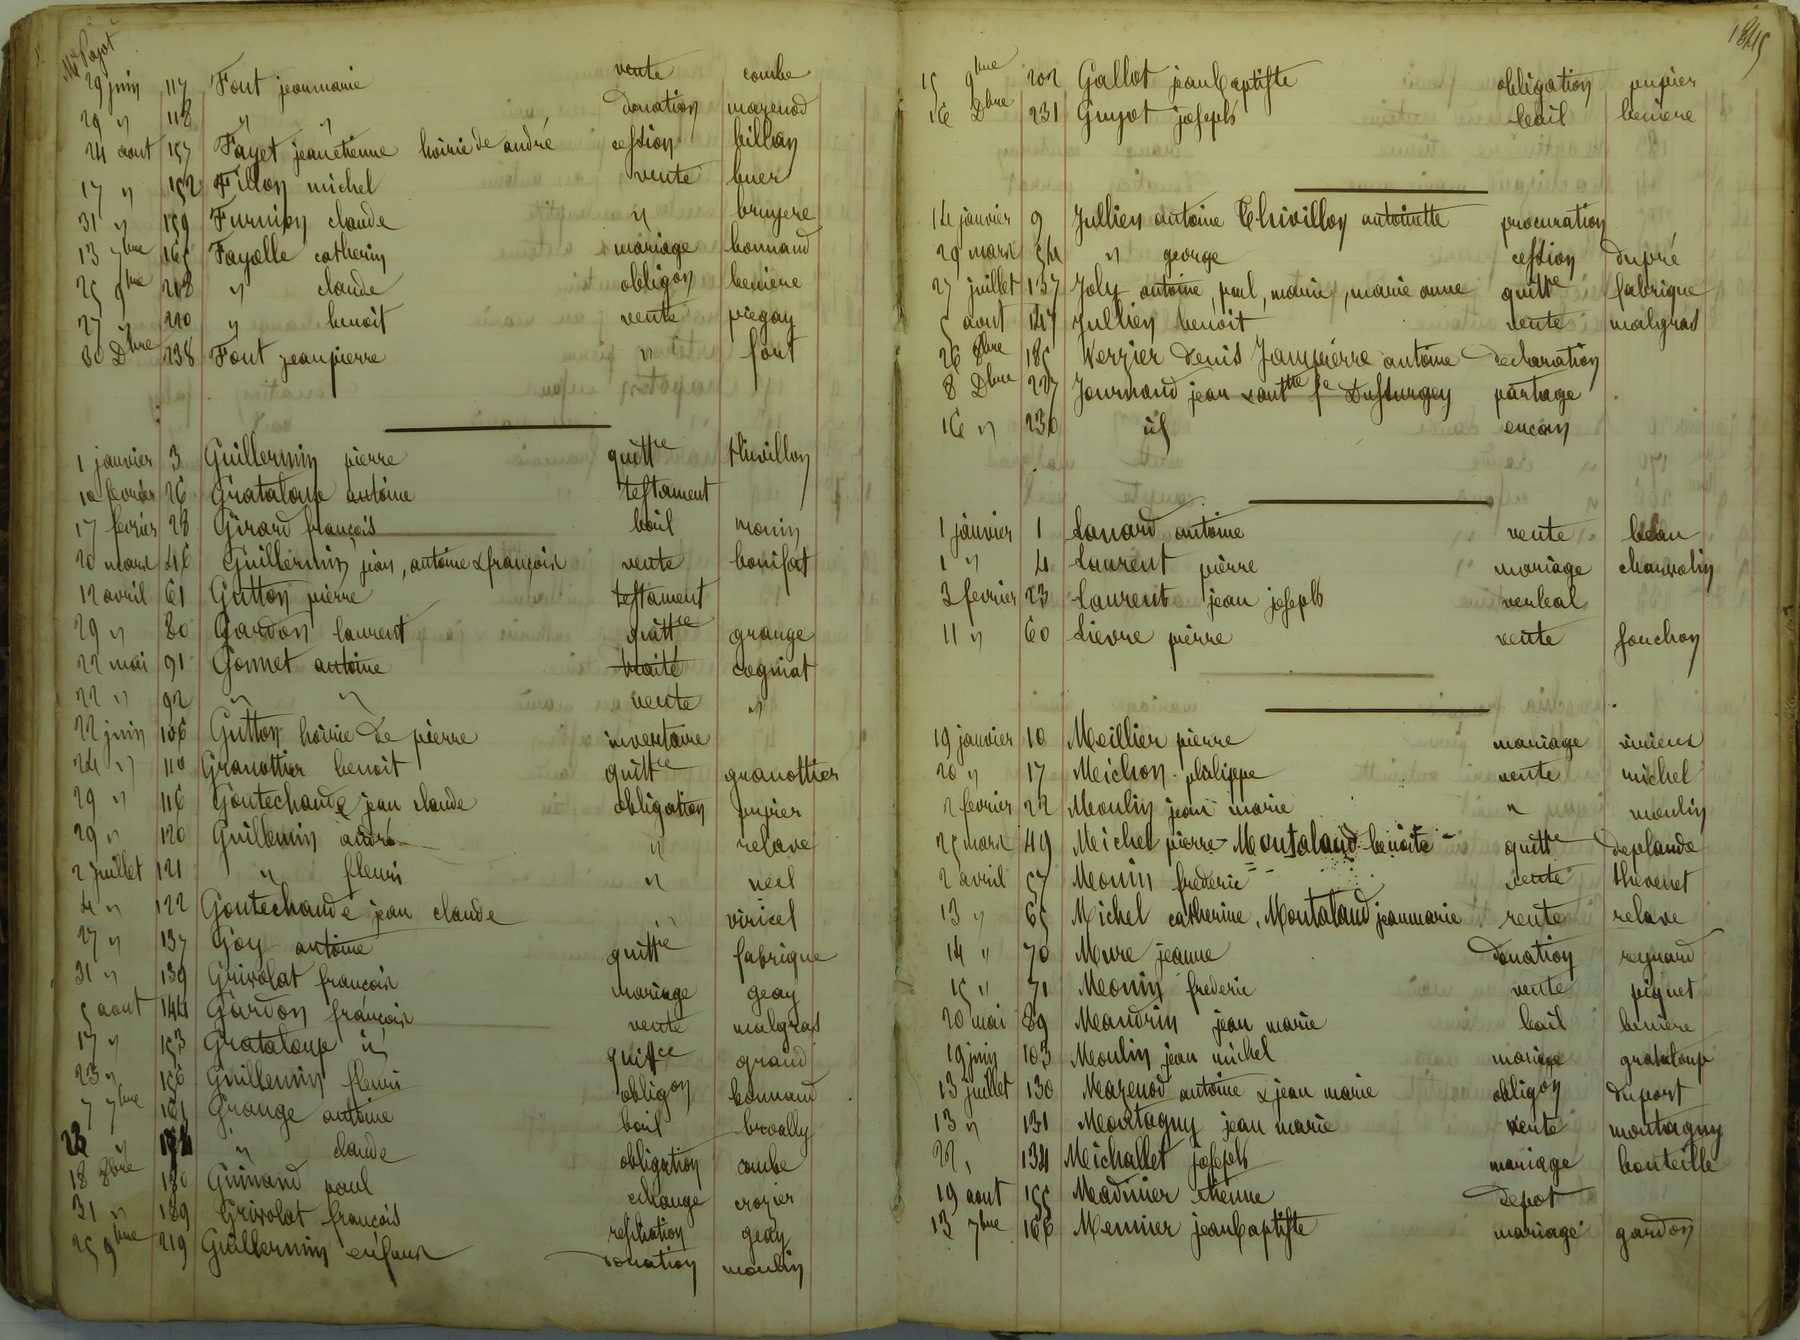 Me Pajot
29 juin 117 Font jeanmarie vente combe
29 " 118 " " donation mazenod
24 aout 157 Fayet jean etienne hoirie de andré cession billon
17 " 152 Fillon michel vente buer
31 " 159 Furnion claude " bruyere
13 7bre 165 Fayolle catherin mariage bonnand
25 9bre 218 " claude obligon beniere
27 " 220 " benoit vente piegay
30 Dbre 238 Font jeanpierre " font
1 janvier 3 Guillermin pierre quittce thivillon
10 fevrier 26 Grataloup antoine testament
17 fevrier 28 Girard françois bail monin
20 mars 46 Guillermin jean, antoine & françois vente bonifat
12 avril 61 Gutton pierre testament
29 " 80 Gardon laurent quittce grange
22 mai 91 Gonnet antoine traité cogniat
22 " 92 " " vente "
22 juin 106 Gutton hoirie de pierre inventaire
24 " 110 Granottier benoit quittce granottier
29 " 116 Goutechaude jean claude obligation pupier
29 " 120 Guillemin andré " relave
2 juillet 121 " fleuri " neel
4 " 122 Goutechaude jean claude " viricel
27 " 137 Goy antoine quittce fabrique
31 " 139 Grivolat françois mariage geay
5 aout 144 Gardon françois vente malgras
17 " 153 Grataloup id quittce grand
23 " 156 Guillemin fleuri obligon bonnand
7 7bre 161 Grange antoine bail broally
" claude obligation combe
18 8bre 180 Guinand paul echange crozier
31 " 189 Grivolat françois resiliation geay
25 9bre 219 Guillermin enfans donation moulin
1845
15 9bre 202 Gallot jean baptiste obligation pupier
16 Dbre 231 Guyot joseph bail beniere
14 janvier 9 Jullien antoine Thivillon antoinette procuration
29 mars 54 " george cession dupré
27 juillet 137 Joly antoine, paul, marie, marie anne quittce fabrique
5 aout 147 Jullien benoit vente malgras
26 8bre 185 denis Jeanpierre antoine declaration
8 Dbre 227 Journoud jean partage
16 " 230 id encan
1 janvier 1 Lanard antoine vente
1 " 4 Laurent pierre mariage charvolin
3 fevrier 23 Laurent jean joseph verbal
11 " 60 Lievre pierre vente fonchon
19 janvier 10 Meillier pierre mariage vivieux
20 " 17 Meichon philippe vente michel
2 fevrier 22 Moulin jean marie " moulin
25 mars 49 Michel pierre - Montaland benoite - quittce deplaude
2 avril 57 Monin frederic vente thevenet
13 " 65 Michel catherine, Montaland jeanmarie vente relave
14 " 70 Mure jeanne donation reynard
15 " 71 Monin frederic vente pignet
20 mai 89 Mandrin jean marie bail beniere
19 juin 103 Moulin jean michel mariage grataloup
13 juillet 130 Mazenod antoine & jean marie obligon duport
13 " 131 Montagny jean marie vente montagny
22 " 134 Michallet joseph mariage bouteille
19 aout 155 Madinier etienne depot
13 7bre 166 Mennier jean baptiste mariage gardon